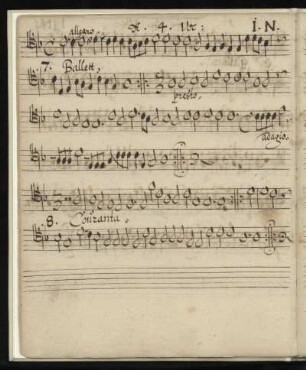 allegro. A. 4. Vt: I. N.
7. Ballett,
presto,
adagio,
8. Couranta,